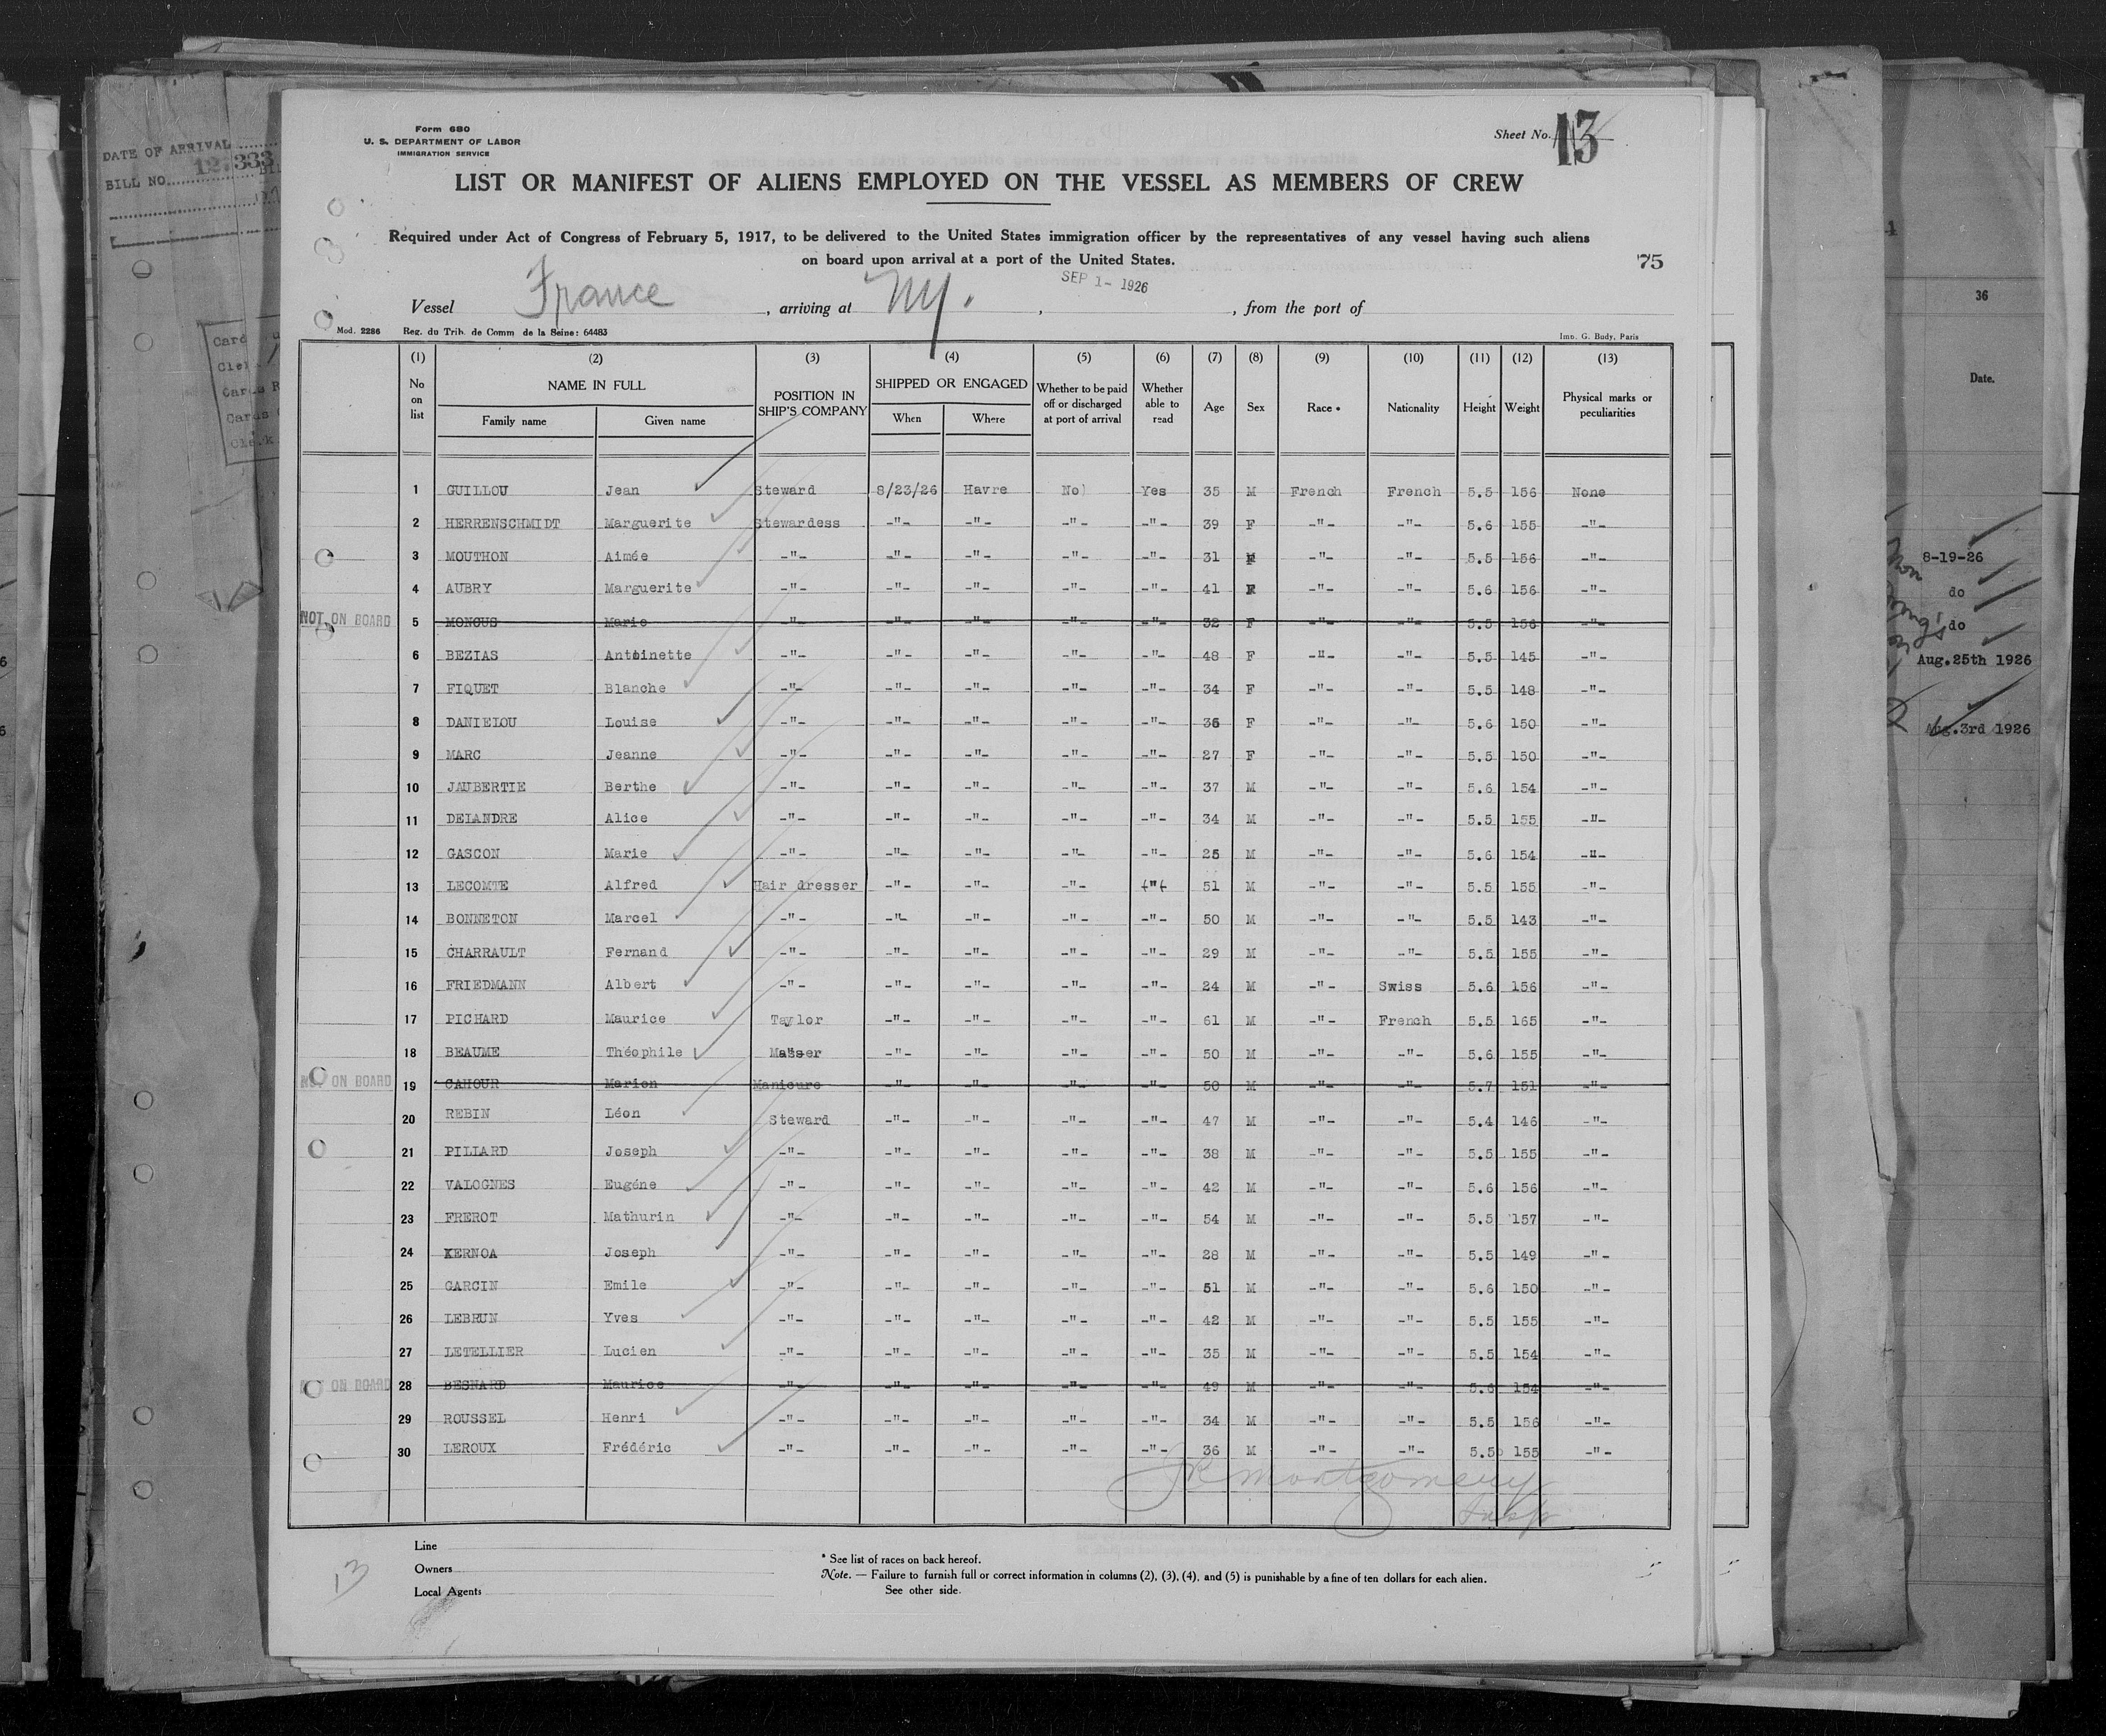 DATE OF ARRIVAL
BILL NO. 127333
Form 680
U. S. DEPARTMENT OF LABOR
IMMIGRATION SERVICE
Sheet No. 13
LIST OR MANIFEST OF ALIENS EMPLOYED ON THE VESSEL AS MEMBERS OF CREW
Required under Act of Congress of February 5, 1917, to be delivered to the United States immigration officer by the representatives of any vessel having such aliens
on board upon arrival at a port of the United States.
75
SEP 1- 1926
Vessel France, arriving at NY. , , from the port of
Mod. 2286 Reg. du Trib. de Comm de la Seine: 64483 Imp. G. Budy, Paris
(1) (2) (3) (4) (5) (6) (7) (8) (9) (10) (11) (12) (13)
No on list NAME IN FULL Family name Given name POSITION IN SHIP'S COMPANY SHIPPED OR ENGAGED When Where Whether to be paid off or discharged at port of arrival Whether able to read Age Sex Race * Nationality Height Weight Physical marks or peculiarities
1 GUILLOU Jean Steward 8/23/26 Havre No Yes 35 M French French 5.5 156 None
2 HERRENSCHMIDT Marguerite Stewardess -"- -"- -"- -"- 39 F -"- -"- 5.6 155 -"-
3 MOUTHON Aimée -"- -"- -"- -"- -"- 31 F -"- -"- 5.5 156 -"-
4 AUBRY Marguerite -"- -"- -"- -"- -"- 41 F -"- -"- 5.6 156 -"-
NOT ON BOARD 5 MONGUS Marie -"- -"- -"- -"- -"- 32 F -"- -"- 5.5 156 -"-
6 BEZIAS Antoinette -"- -"- -"- -"- -"- 48 F -"- -"- 5.5 145 -"-
7 FIQUET Blanche -"- -"- -"- -"- -"- 34 F -"- -"- 5.5 148 -"-
8 DANIELOU Louise -"- -"- -"- -"- -"- 36 F -"- -"- 5.6 150 -"-
9 MARC Jeanne -"- -"- -"- -"- -"- 27 F -"- -"- 5.5 150 -"-
10 JAUBERTIE Berthe -"- -"- -"- -"- -"- 37 M -"- -"- 5.6 154 -"-
11 DELANDRE Alice -"- -"- -"- -"- -"- 34 M -"- -"- 5.5 155 -"-
12 GASCON Marie -"- -"- -"- -"- -"- 25 M -"- -"- 5.6 154 -"-
13 LECOMTE Alfred Hair dresser -"- -"- -"- -"- 51 M -"- -"- 5.5 155 -"-
14 BONNETON Marcel -"- -"- -"- -"- -"- 50 M -"- -"- 5.5 143 -"-
15 CHARRAULT Fernand -"- -"- -"- -"- -"- 29 M -"- -"- 5.5 155 -"-
16 FRIEDMANN Albert -"- -"- -"- -"- -"- 24 M -"- Swiss 5.6 156 -"-
17 PICHARD Maurice Taylor -"- -"- -"- -"- 61 M -"- French 5.5 165 -"-
18 BEAUME Théophile -"- -"- -"- -"- 50 M -"- -"- 5.6 155 -"-
NOT ON BOARD 19 CAHOUR Marion Manicure -"- -"- -"- -"- 50 M -"- -"- 5.7 151 -"-
20 REBIN Léon Steward -"- -"- -"- -"- 47 M -"- -"- 5.4 146 -"-
21 PILLARD Joseph -"- -"- -"- -"- -"- 38 M -"- -"- 5.5 155 -"-
22 VALOGNES Eugéne -"- -"- -"- -"- -"- 42 M -"- -"- 5.6 156 -"-
23 FREROT Mathurin -"- -"- -"- -"- -"- 54 M -"- -"- 5.5 157 -"-
24 KERNOA Joseph -"- -"- -"- -"- -"- 28 M -"- -"- 5.5 149 -"-
25 GARCIN Emile -"- -"- -"- -"- -"- 51 M -"- -"- 5.6 150 -"-
26 LEBRUN Yves -"- -"- -"- -"- -"- 42 M -"- -"- 5.5 155 -"-
27 LETELLIER Lucien -"- -"- -"- -"- -"- 35 M -"- -"- 5.5 154 -"-
NOT ON BOARD 28 BESNARD Maurice -"- -"- -"- -"- -"- 49 M -"- -"- 5.6 154 -"-
29 ROUSSEL Henri -"- -"- -"- -"- -"- 34 M -"- -"- 5.5 156 -"-
30 LEROUX Frédéric -"- -"- -"- -"- -"- 36 M -"- -"- 5.5 155 -"-
JR Montgomery
Insp
Line
Owners
Local Agents
13
* See list of races on back hereof.
Note. — Failure to furnish full or correct information in columns (2), (3), (4), and (5) is punishable by a fine of ten dollars for each alien.
See other side.
36
Date.
8-19-26
do
do
Aug.25th 1926
Aug.3rd 1926